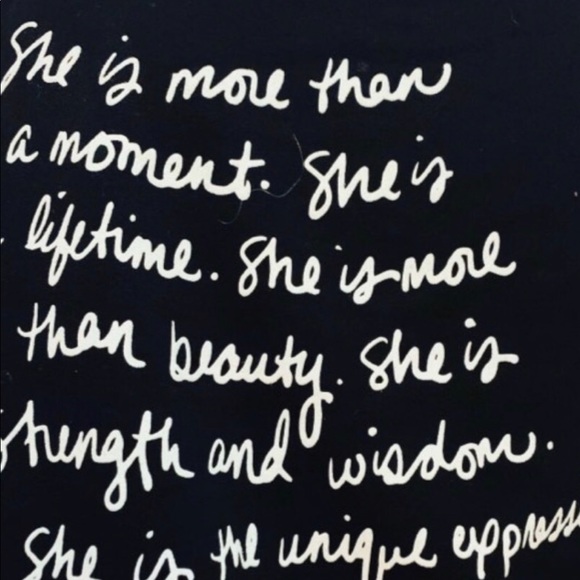 She is more than
a moment. She is
lifetime. She is more
than beauty. She is
strength and wisdom.
She is the unique express